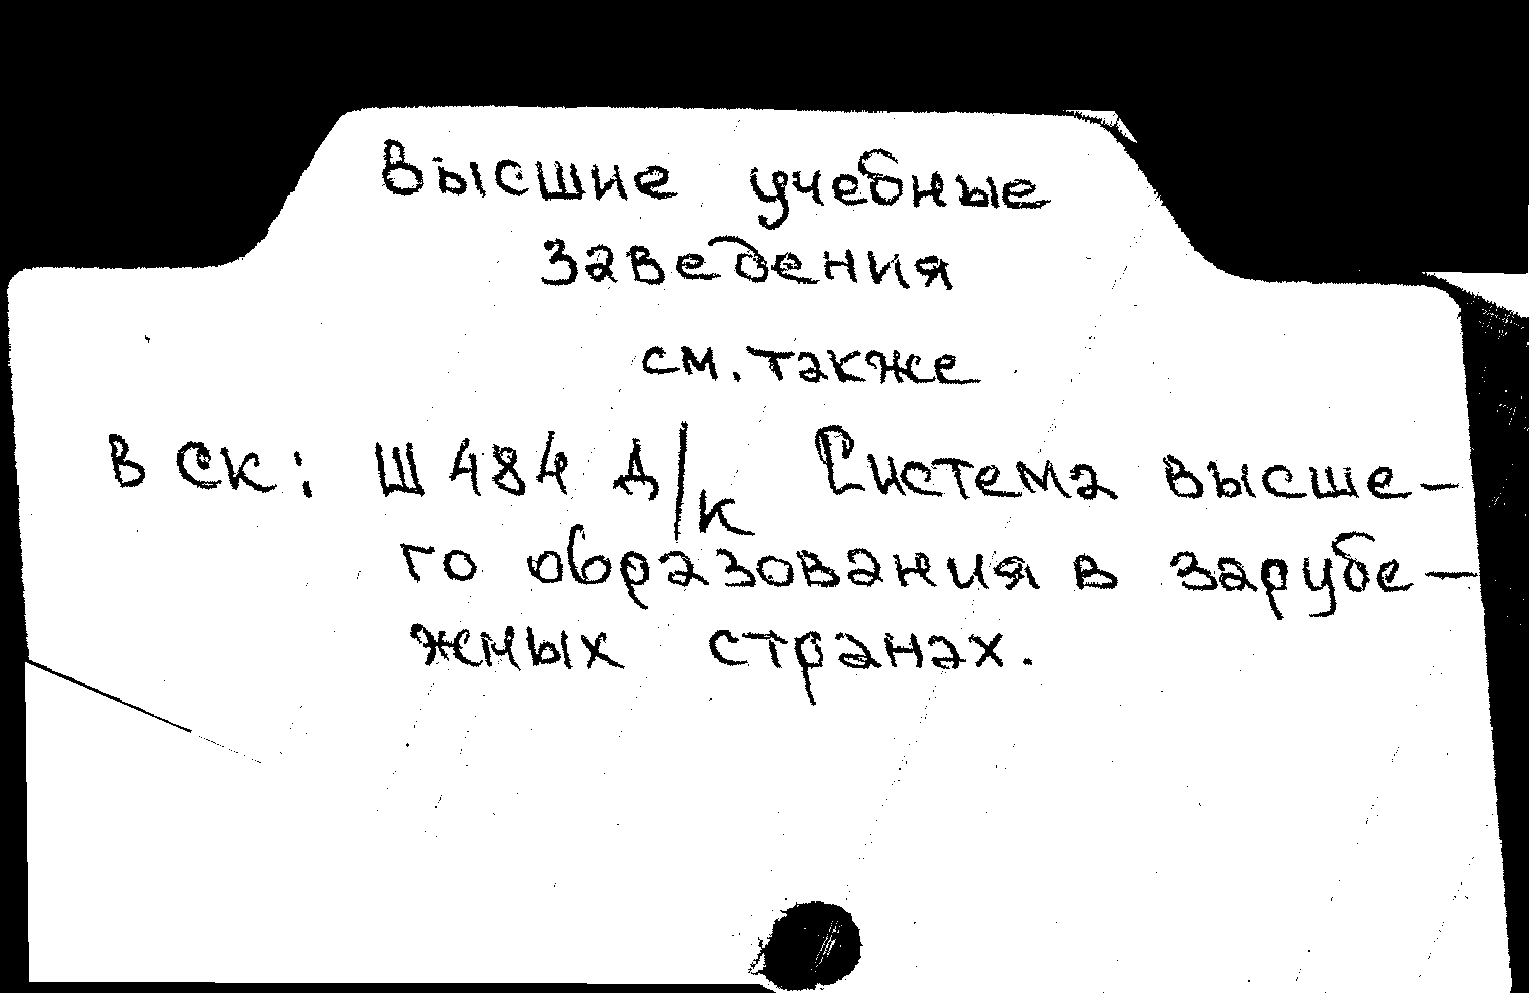 Высшие учебные
заведения
см. также
В СК: Ш 484 д/к Система высше-
го образования в зарубе-
жных странах.